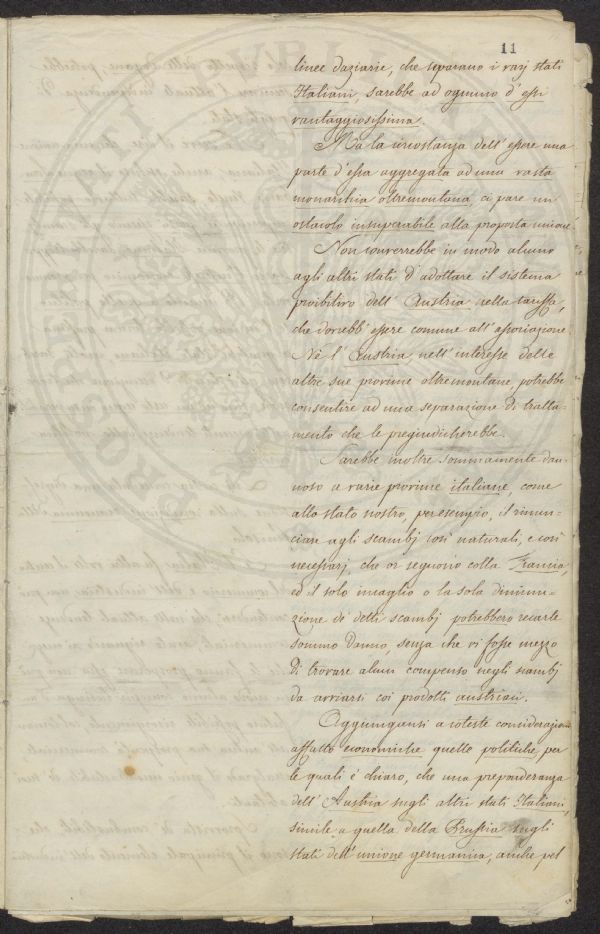 11
linee daziarie, che separano i varj stati
Italiani, sarebbe ad ognuno d'essi
vantaggiosissima.
Ma la circostanza dell'essere una
parte d'essa aggregata ad una vasta
monarchia oltremontana, ci pare un
ostacolo insuperabile alla proposta unione
Non converrebbe in modo alcuno
agli altri stati d'adottare il sistema
proibitivo dell'Austria nella tariffa,
che dovrebb'essere comune all'associazione.
Nè l'Austria nell'interesse delle
altre sue provincie oltremontane, potrebbe
consentire ad una separazione di tratta-
mento che le pregiudicherebbe.
Sarebbe inoltre sommamente dan-
noso a varie provincie italiane, come
allo stato nostro, per esempio, il rinun-
ciare agli scambj così naturali, e così
necessarj, che or seguono colla Francia,
ed il solo incaglio o la sola diminu-
zione di detti scambj potrebbero recarle
sommo danno, senza che vi fosse mezzo
di trovare alcun compenso negli scambj
da avviarsi coi prodotti austriaci.
Aggiungansi a coteste considerazioni
affatto economiche quelle politiche, per
le quali è chiaro, che una preponderanza
dell'Austria sugli altri stati Italiani,
simile a quella della Prussia sugli
stati dell'unione germanica, anche pel